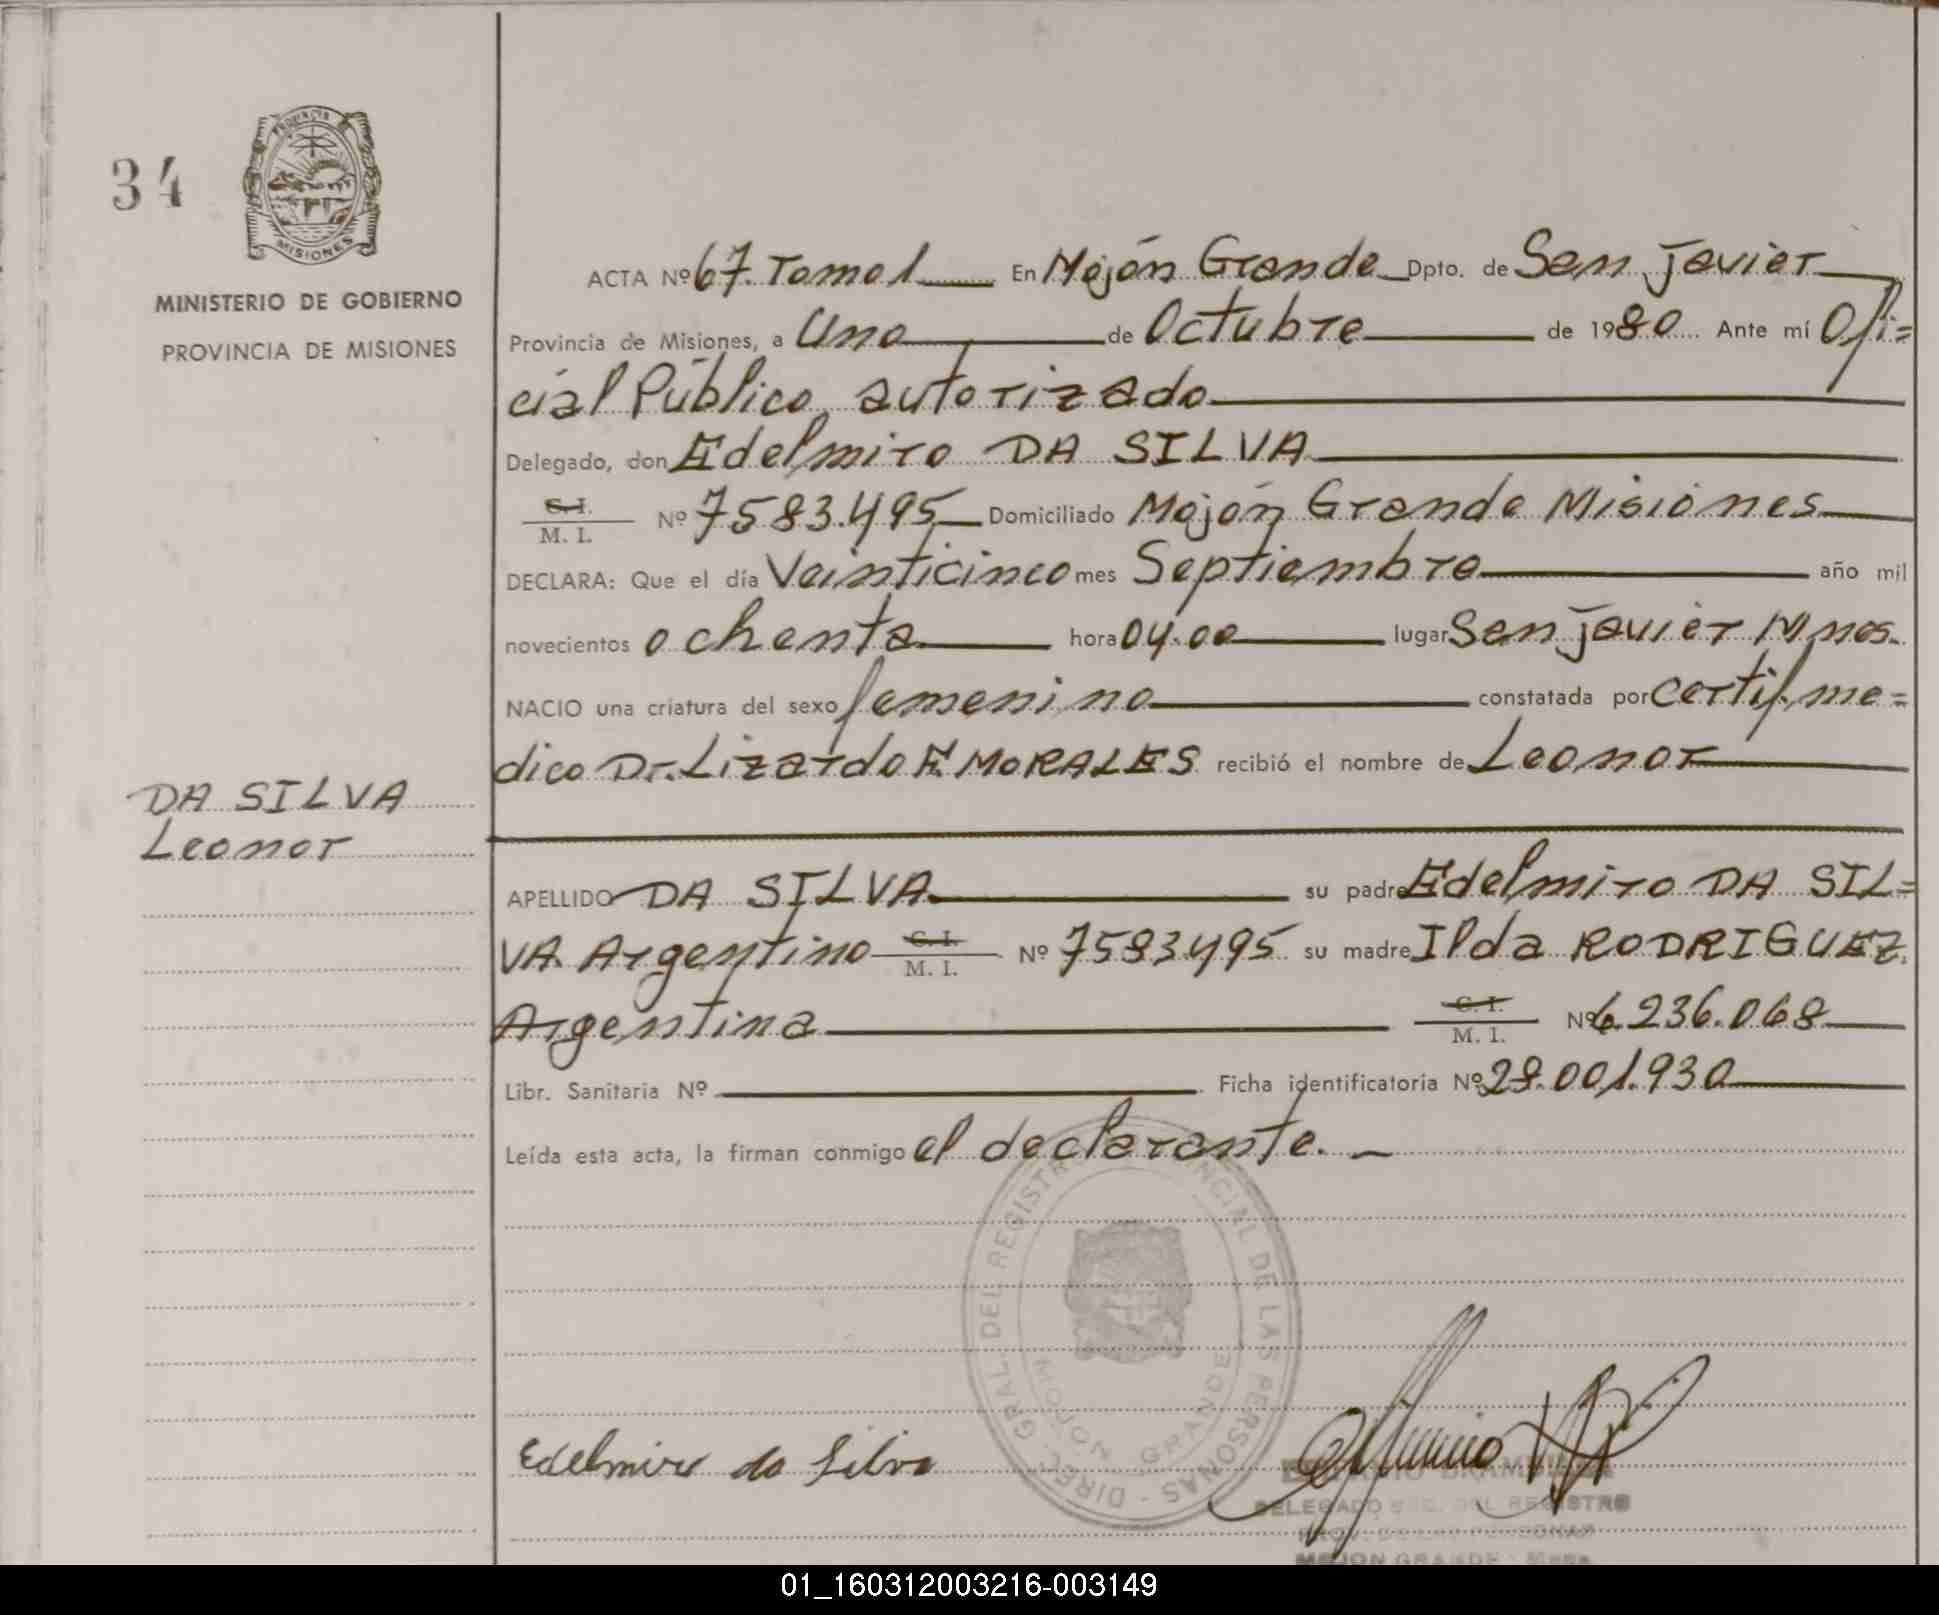 34
PROVINCIA DE
MISIONES
MINISTERIO DE GOBIERNO
PROVINCIA DE MISIONES
ACTA Nº 67. Tomo 1 En Mojón Grande Dpto. de San Javier
Provincia de Misiones, a Uno de Octubre de 1980 Ante mí Ofi=
cial Público autorizado
Delegado, don Edelmiro DA SILVA
C. I.
M. I. Nº 7583.495 Domiciliado Mojón Grande Misiones
DECLARA: Que el día Veinticinco mes Septiembre año mil
novecientos ochenta hora 04.00 lugar San Javier Mnes.
NACIO una criatura del sexo femenino constatada por certif. me=
dico Dr. Lizardo F. MORALES recibió el nombre de Leonor
DA SILVA
Leonor
APELLIDO DA SILVA su padre Edelmiro DA SIL=
VA. Argentino C. I.
M. I. Nº 7583.495 su madre Ilda RODRIGUEZ.
Argentina C. I.
M. I. Nº 6.236.068
Libr. Sanitaria Nº Ficha identificatoria Nº 28.001.930
Leída esta acta, la firman conmigo el declarante. —
DIREC. GRAL. DEL REGISTRO PROVINCIAL DE LAS PERSONAS -
MOJON GRANDE
Edelmiro da Silva
DELEGADO DEL REGISTRO
PROV. DE LAS PERSONAS
MOJON GRANDE - Mnes.
01_160312003216-003149